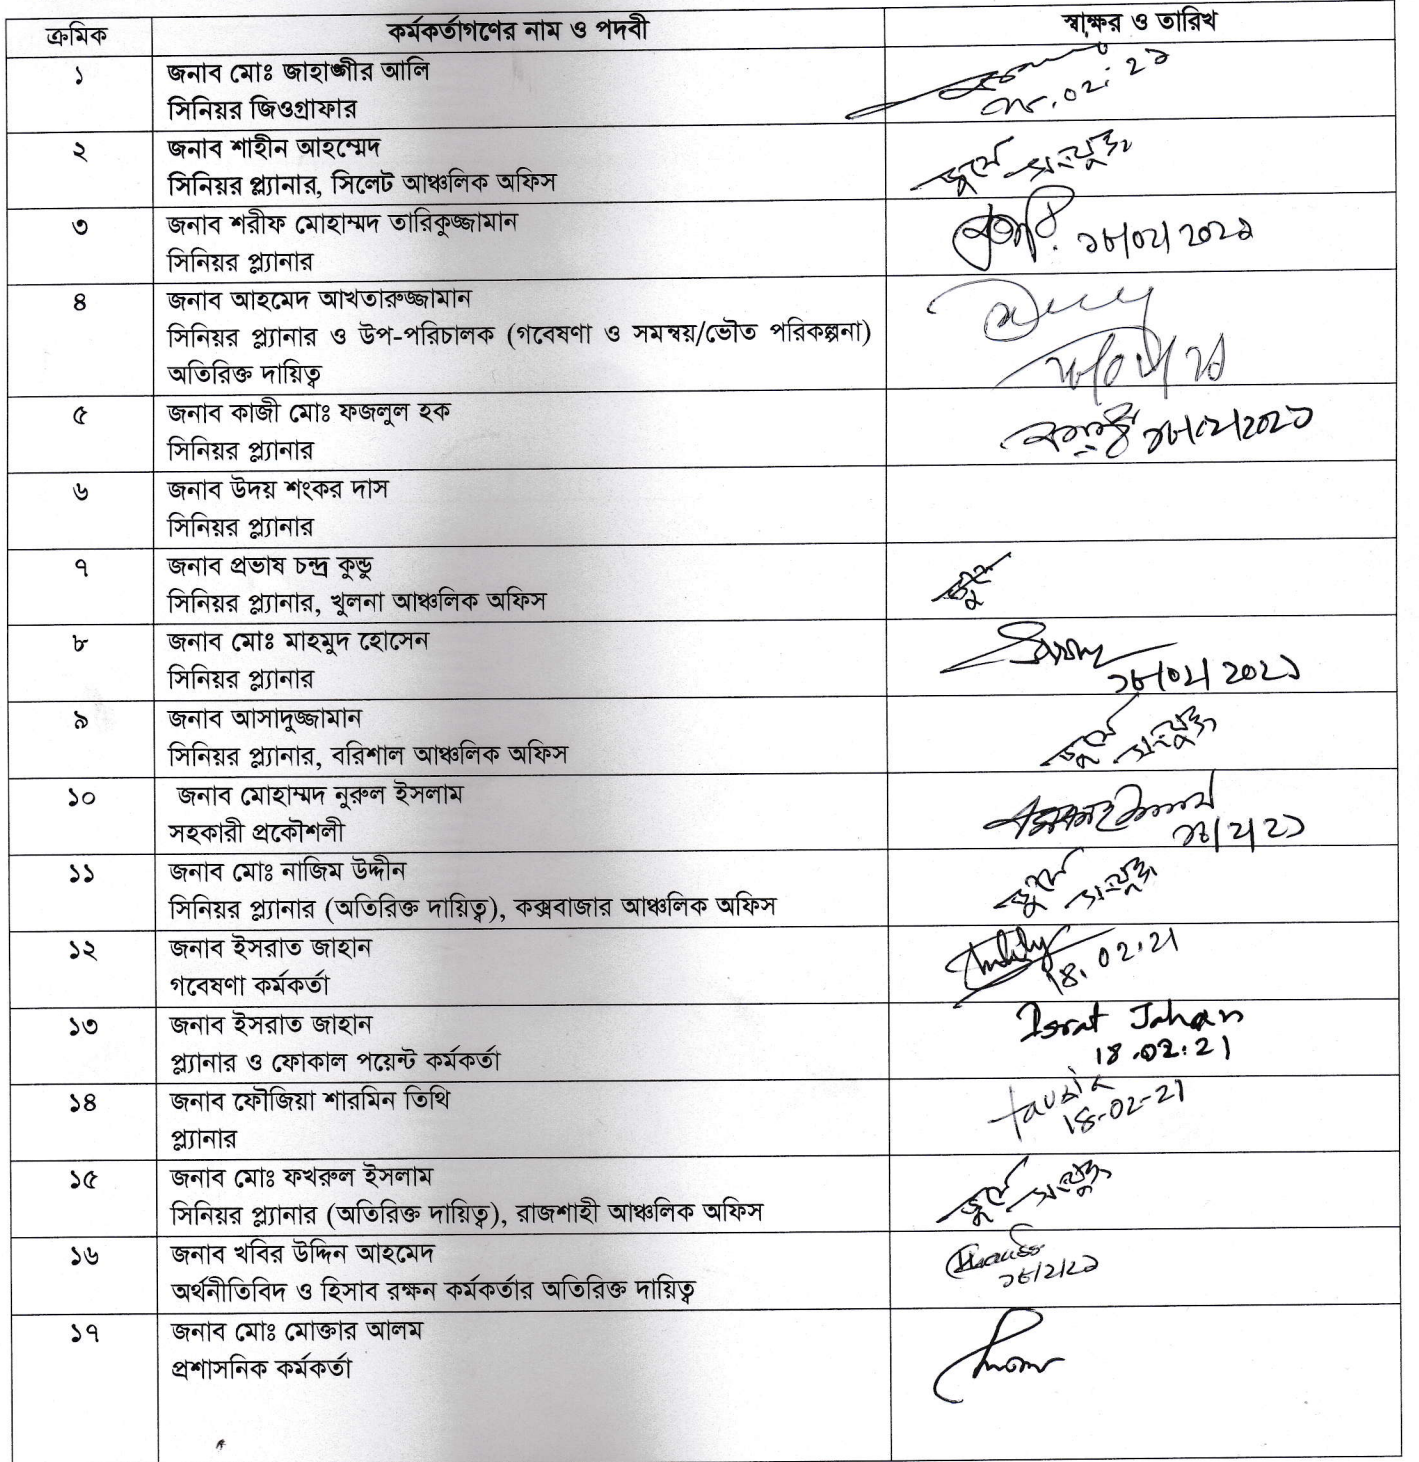 ক্রমিক	কর্মকর্তাগণের নাম ও পদবী	স্বাক্ষর ও তারিখ
১	জনাব মোঃ জাহাঙ্গীর আলি
সিনিয়র জিওগ্রাফার
২	জনাব শাহীন আহম্মেদ	জুমে সংযুক্ত
সিনিয়র প্ল্যানার, সিলেট আঞ্চলিক অফিস
৩	জনাব শরীফ মোহাম্মদ তারিকুজ্জামান	১৮/০২/২০২১
সিনিয়র প্ল্যানার
৪	জনাব আহমেদ আখতারুজ্জামান
সিনিয়র প্ল্যানার ও উপ-পরিচালক (গবেষণা ও সমন্বয়/ভৌত পরিকল্পনা)
অতিরিক্ত দায়িত্ব
৫	জনাব কাজী মোঃ ফজলুল হক	১৮/০২/২০২১
সিনিয়র প্ল্যানার
৬	জনাব উদয় শংকর দাস
সিনিয়র প্ল্যানার
৭	জনাব প্রভাষ চন্দ্র কুন্ডু
সিনিয়র প্ল্যানার, খুলনা আঞ্চলিক অফিস
৮	জনাব মোঃ মাহমুদ হোসেন
সিনিয়র প্ল্যানার	১৮/০২/২০২১
৯	জনাব আসাদুজ্জামান	জুমে সংযুক্ত
সিনিয়র প্ল্যানার, বরিশাল আঞ্চলিক অফিস
১০	জনাব মোহাম্মদ নুরুল ইসলাম
সহকারী প্রকৌশলী	১৮/২/২১
১১	জনাব মোঃ নাজিম উদ্দীন	জুমে সংযুক্ত
সিনিয়র প্ল্যানার (অতিরিক্ত দায়িত্ব), কক্সবাজার আঞ্চলিক অফিস
১২	জনাব ইসরাত জাহান
গবেষণা কর্মকর্তা	18.02.21
১৩	জনাব ইসরাত জাহান	Israt Jahan
প্ল্যানার ও ফোকাল পয়েন্ট কর্মকর্তা	18.02.21
১৪	জনাব ফৌজিয়া শারমিন তিথি
প্ল্যানার	18-02-21
১৫	জনাব মোঃ ফখরুল ইসলাম	জুমে সংযুক্ত
সিনিয়র প্ল্যানার (অতিরিক্ত দায়িত্ব), রাজশাহী আঞ্চলিক অফিস
১৬	জনাব খবির উদ্দিন আহমেদ
অর্থনীতিবিদ ও হিসাব রক্ষন কর্মকর্তার অতিরিক্ত দায়িত্ব	১৮/২/২১
১৭	জনাব মোঃ মোক্তার আলম
প্রশাসনিক কর্মকর্তা